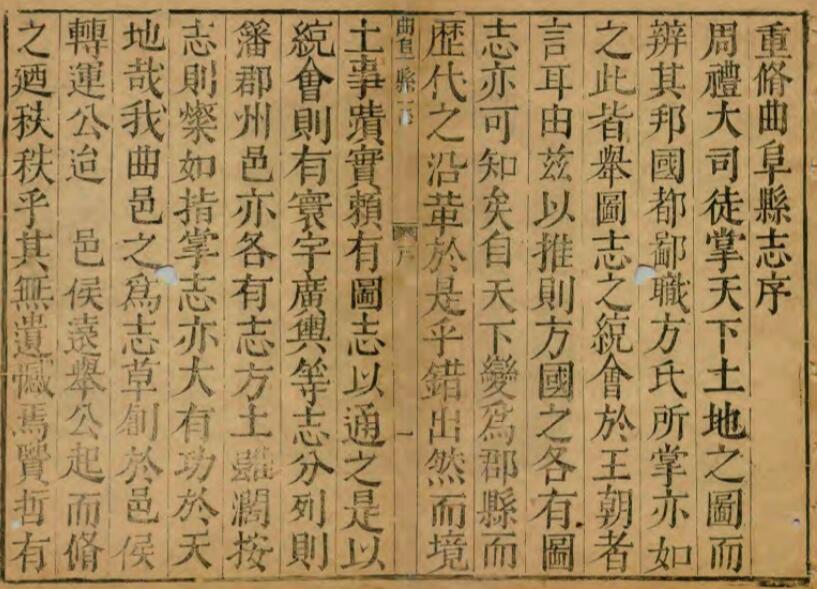 重脩曲阜縣志序
周禮大司徒掌天下土地之圖而
辨其邦國都鄙職方氏所掌亦如
之此皆舉圖志之統會於王朝者
言耳由茲以推則方國之各有圖
志亦可知矣自天下變爲郡縣而
歷代之沿革於是乎錯出然而境
曲阜縣志
序
一
土事蹟實賴有圖志以通之是以
統會則有寰宇廣輿等志分列則
籓郡州邑亦各有志方土雖濶按
志則燦如指掌志亦大有功於天
地哉我曲邑之爲志草創於邑侯
轉運公迨 邑侯遠舉公起而脩
之廼秩秩乎其無遺憾焉賢哲有